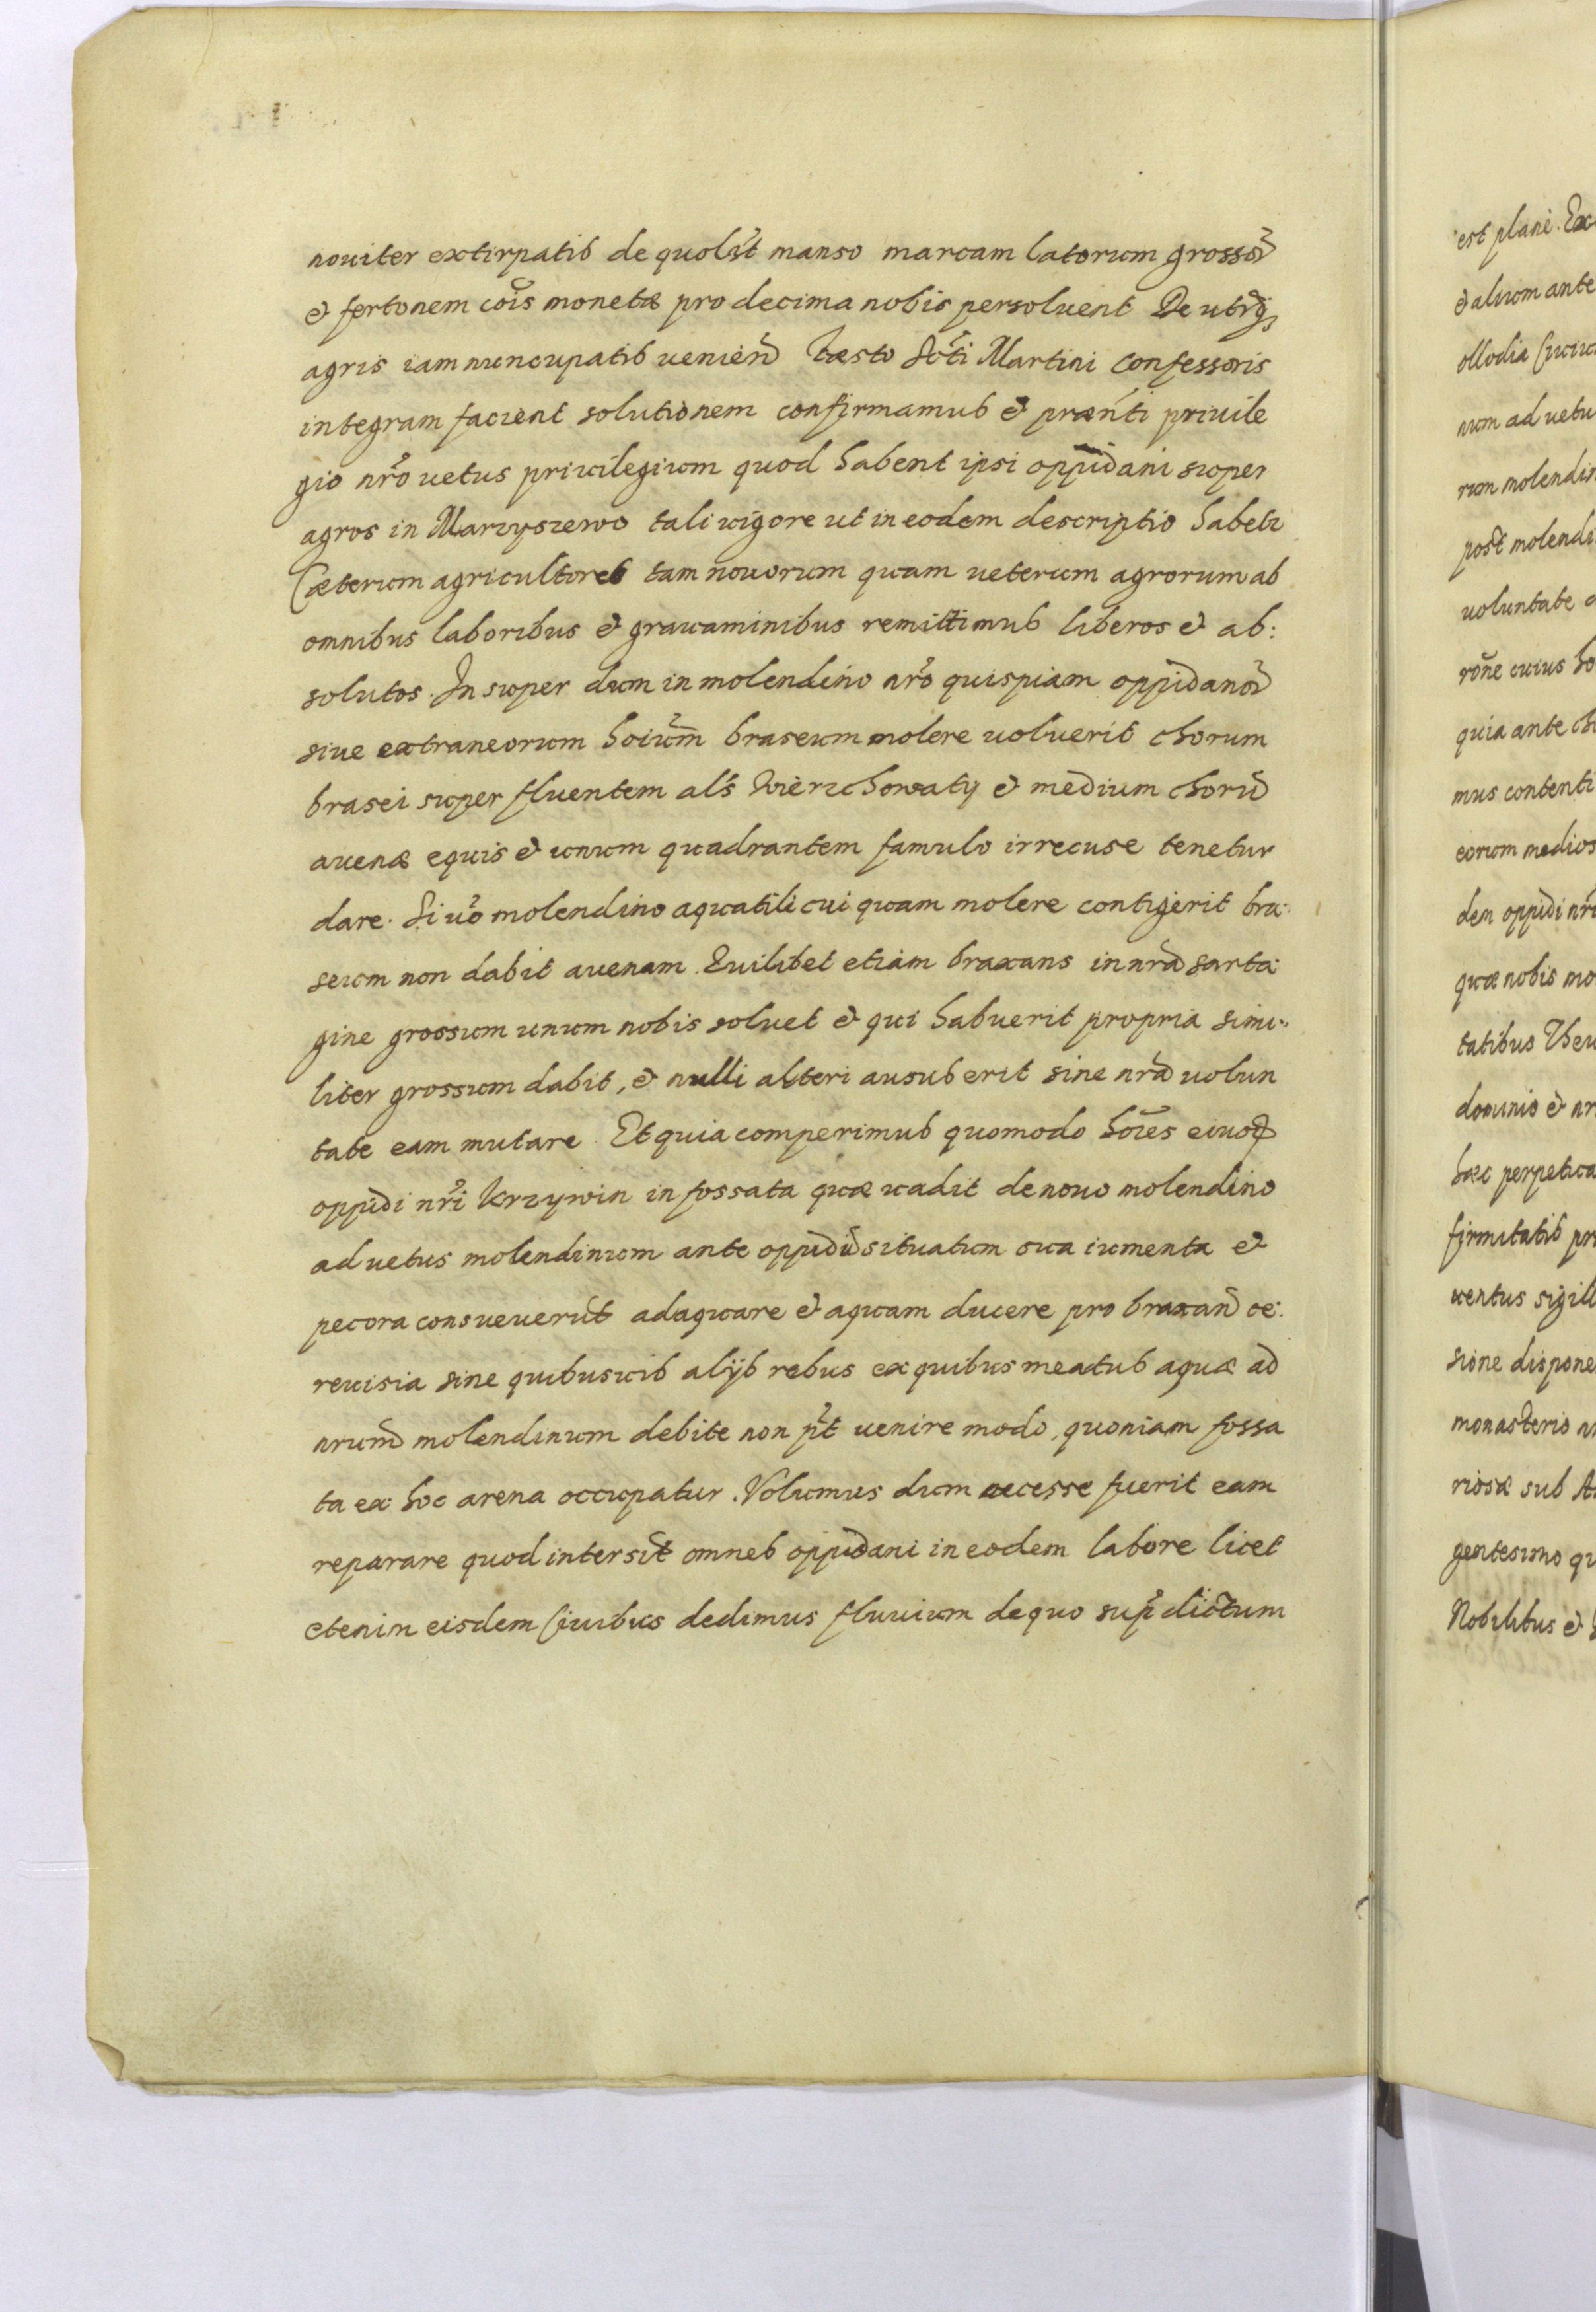 nouiter extirpatis de quolit manso marcam latorum grossor
et fertonem cois monetæ pro decima nobis persoluent De utriq
agris iam nuncupatis uenien festo Scti Martini confessoris
integram facient solutionem confirmamus et prænti priuile
gio nro uetus priuilegium quod habent ipsi oppidani super
agros in Marzyszewo tali uigore ut in eodem descriptio habetr
Cæterum agricultores tam nouorum quam ueterum agrorum ab
omnibus laboribus et grauaminibus remittimus liberos et ab:
solutos. In super dum in molendino nro quispiam oppidanor
siue extraneorum hoium braseum molere uoluerit chorum
brasei super fluentem als Wierzchowaty et medium choru
auenæ equis et unum quadrantem famulo irrecuse tenetur
dare. Si uo molendino aquatili cui quam molere contigerit bra:
seum non dabit auenam. Quilibet etiam braxans in nra sarta:
gine grossum unum nobis soluet et qui habuerit propria simi:
liter grossum dabit, et nulli alteri ausus erit sine nra uolun
tate eam mutare. Et quia comperimus quomodo hoies eiusd
oppidi nri Krzywin in fossata quæ uadit de nouo molendino
ad uetus molendinum ante oppidu situatum sua iumenta et
pecora consueuerut adaquare et aquam ducere pro braxan ce:
reuisia sine quibusuis alijs rebus ex quibus meatus aquæ ad
nrum molendinum debite non pt uenire modo, quoniam fossa
ta ex hoc arena occupatur. Volumus dum necesse fuerit eam
reparare quod intersit omnes oppidani in eodem labore licet
etenim eisdem Ciuibus dedimus fluuium de quo sup dictum
est plane. Ex
et alium ante
ollodia
num ad uetu
rum molendin
post molendi
uoluntate
rone cuius ho
quia ante
mus contenti
eorum medios
dem oppidi nri
quæ nobis mo
tatibus Theu
dominio et nr
hæc perpetua
firmitatis pr
uentus sigill
sione dispone
monasterio n
riosæ sub A
gentesimo qu
Nobilibus et